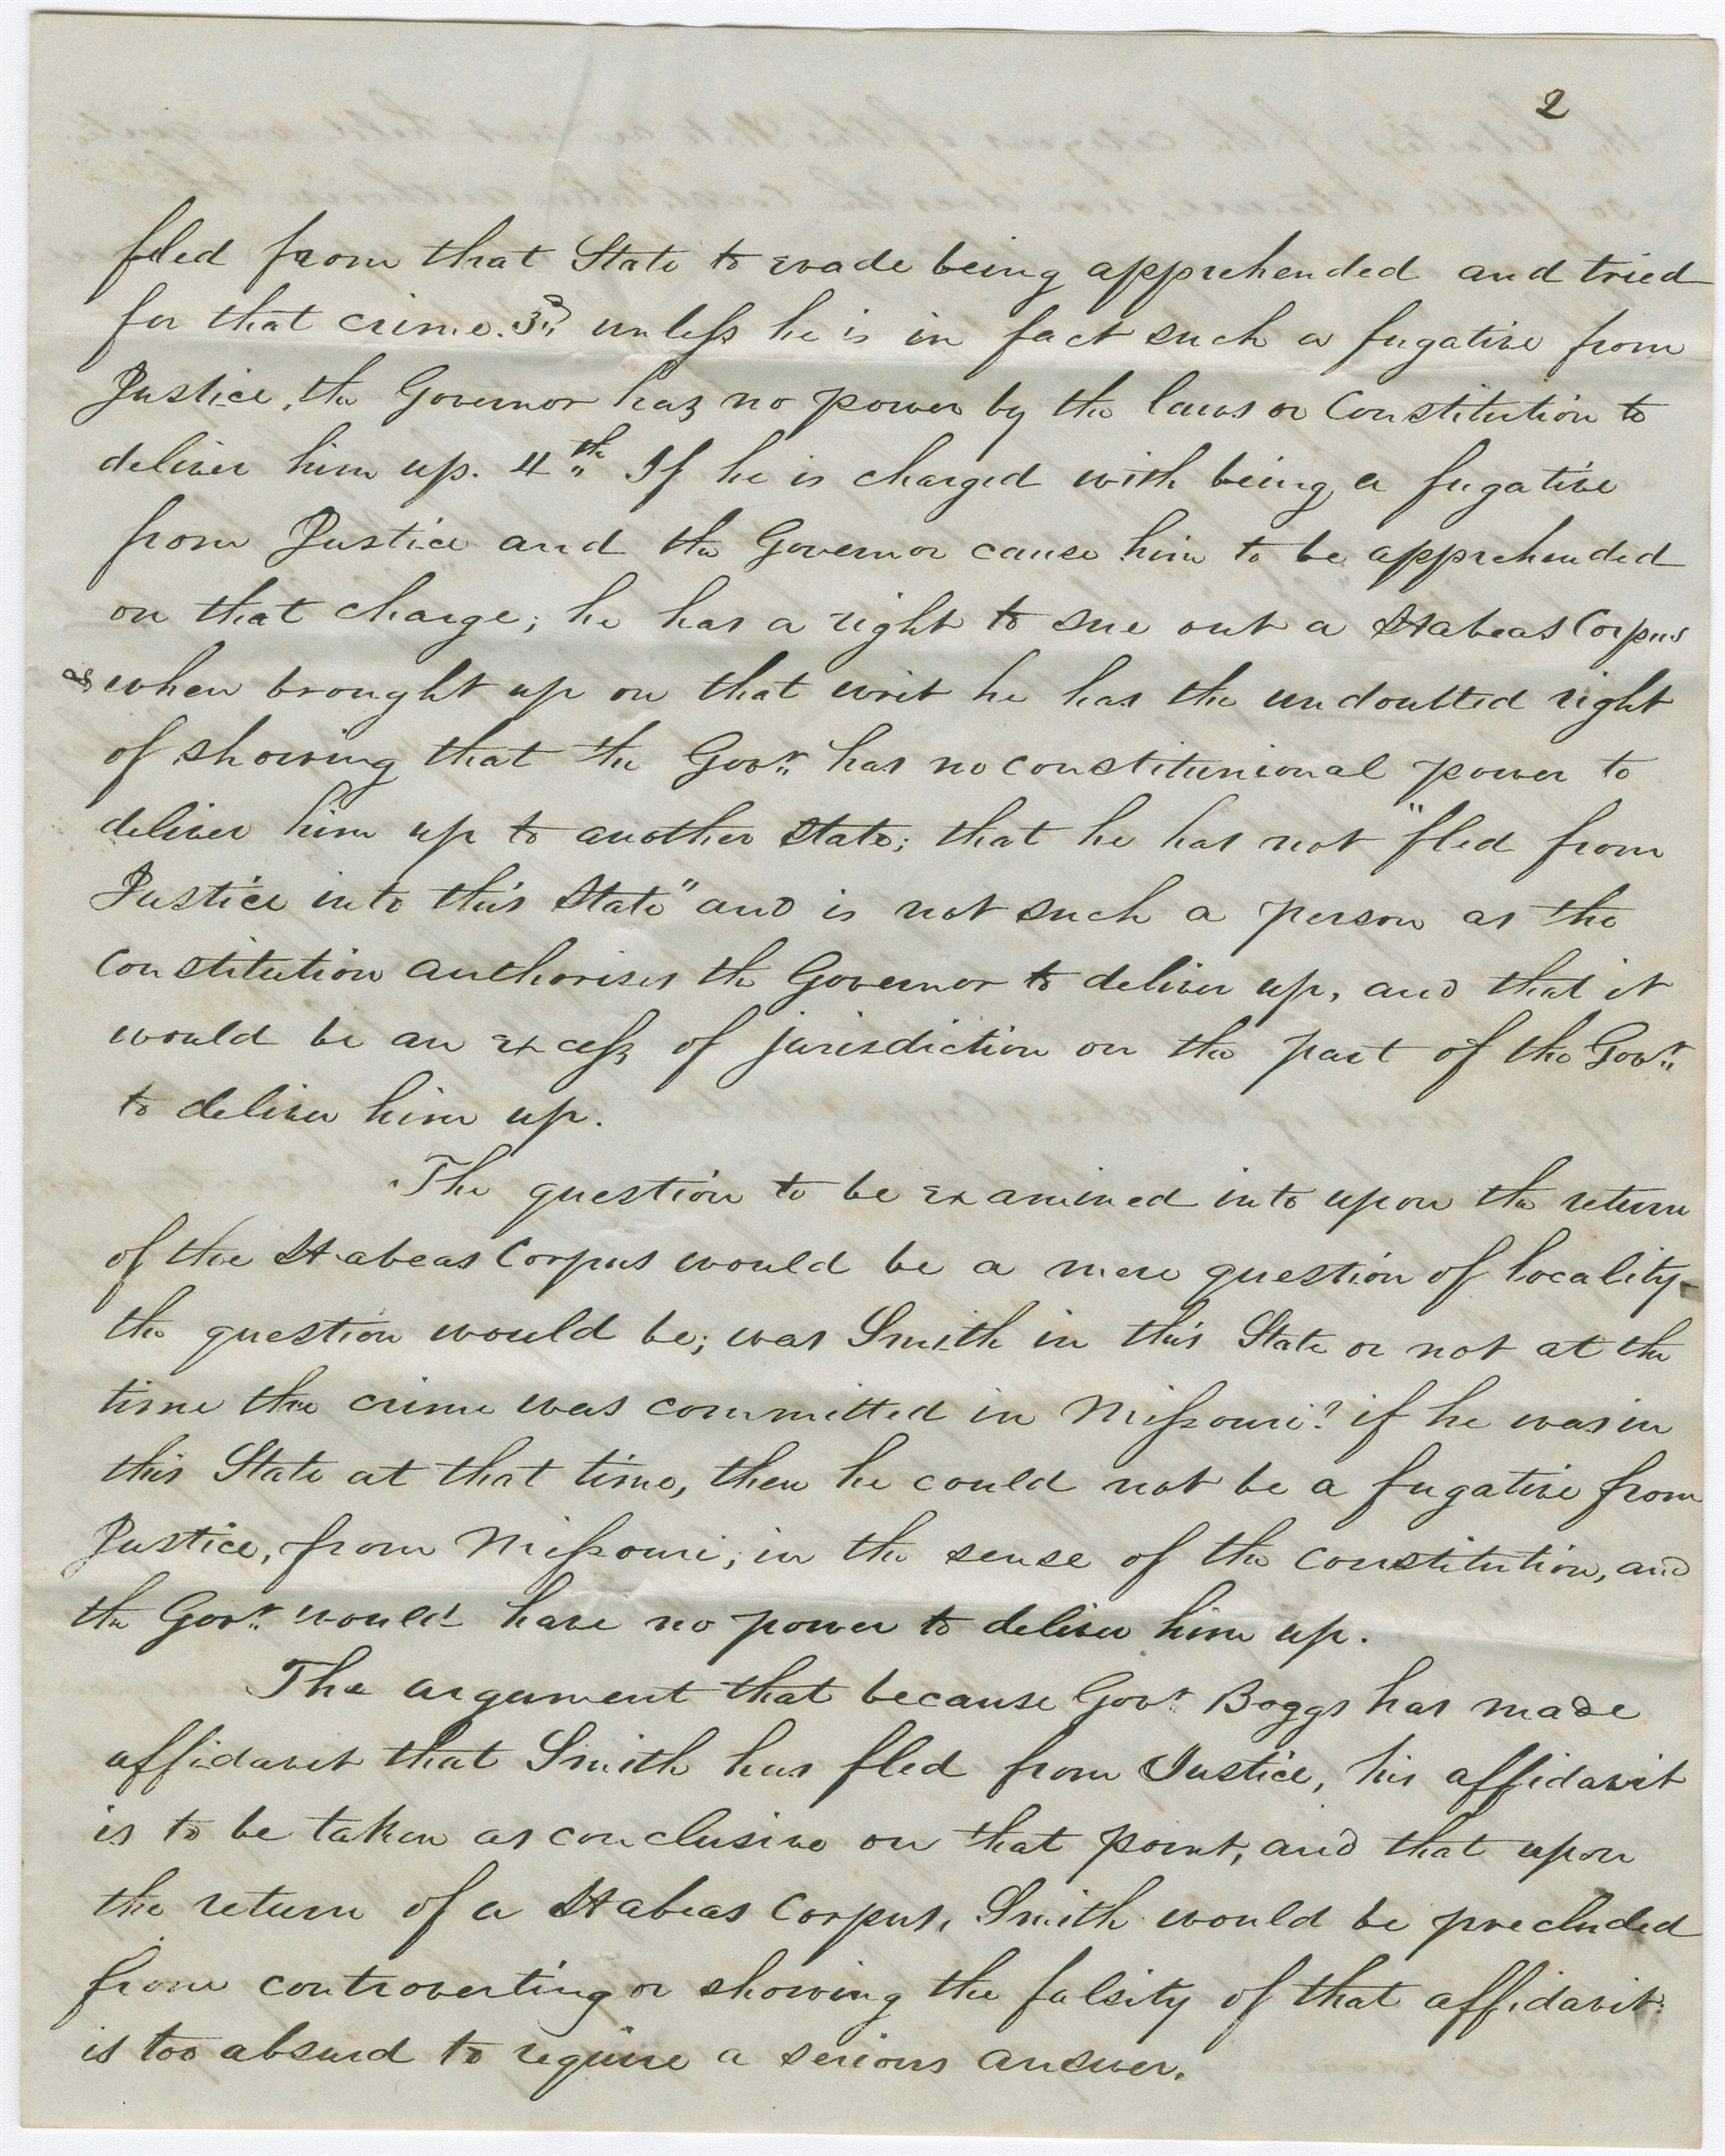 2
fled from that State to evade being apprehended and tried
for that crime. 3d unless he is in fact such a fugative from
Justice, the Governor has no power by the laws or Constitution to
deliver him up. 4th If he is charged with being a fugative
from Justice and the Governor cause him to be apprehended
on that charge; he has a right to sue out a Habeas Corpus
when brought up on that writ he has the undoubted right
of showing that the Govr. has no constitunional power to
deliver him up to another State; that he has not "fled from
Justice into this State" and is not such a person as the
Constitution authorises the Governor to deliver up, and that it
would be an excess of jurisdiction on the part of the Govr.
to deliver him up.
The question to be examined into upon the return
of the Habeas Corpus would be a mere question of locality-
the question would be; was Smith in this State or not at the
time the crime was committed in Missouri? if he was in
this State at that time, then he could not be a fugative from
Justice, from Missouri; in the sense of the constitution, and
the Govr. would have no power to deliver him up.
The argument that because Govr. Boggs has made
affidavit that Smith has fled from Justice, his affidavit
is to be taken as conclusive on that point, and that upon
the return of a Habeas Corpus, Smith would be precluded
from controverting or showing the falsity of that affidavit
is too absurd to require a serious answer.